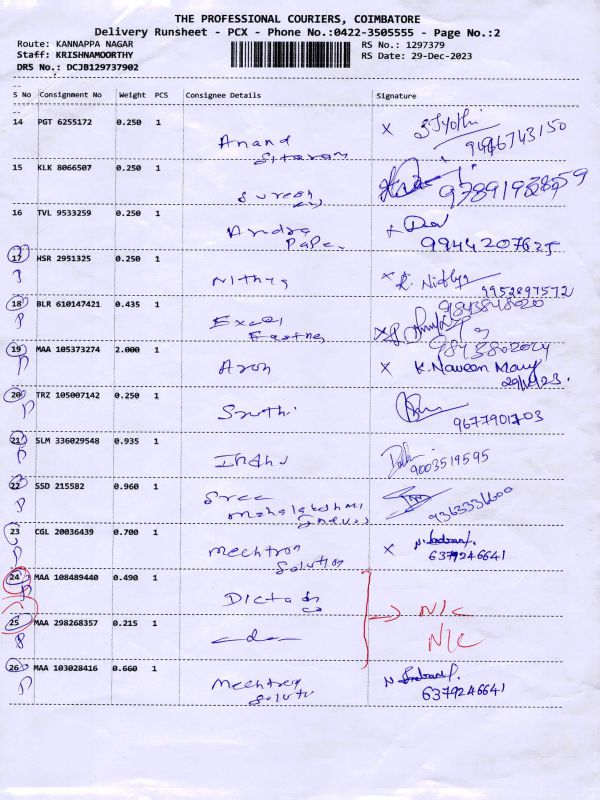 THE PROFESSIONAL COURIERS, COIMBATORE
Delivery Runsheet - PCX - Phone No.:0422-3505555 - Page No.:2
Route: KANNAPPA NAGAR RS No.: 1297379
Staff: KRISHNAMOORTHY RS Date: 29-Dec-2023
DRS No.: DCJB129737902
S No Consignment No Weight PCS Consignee Details Signature
14 PGT 6255172 0.250 1 Anand X S. Jyothi
9486743150
15 KLK 8066507 0.250 1 Suresh
16 TVL 9533259 0.250 1 Andra
Papa
9944207625
17 HSR 2951325 0.250 1 Nithya X K. Nithya
9952897572
18 BLR 610147421 0.435 1 Excel
9843848020
9843802024
19 MAA 105373274 2.000 1 Arun X K. Naveen
20 TRZ 105007142 0.250 1 Sruthi
9677901703
21 SLM 336029548 0.935 1 Indhu
9003519595
22 SSD 215582 0.960 1 Sree
Mahalakshmi
9363336600
23 CGL 20036439 0.700 1 Mechtron X
Solution 6379246641
24 MAA 108489440 0.490 1 N/C
25 MAA 298268357 0.215 1 N/C
26 MAA 103028416 0.660 1 Mechtron
6379246641